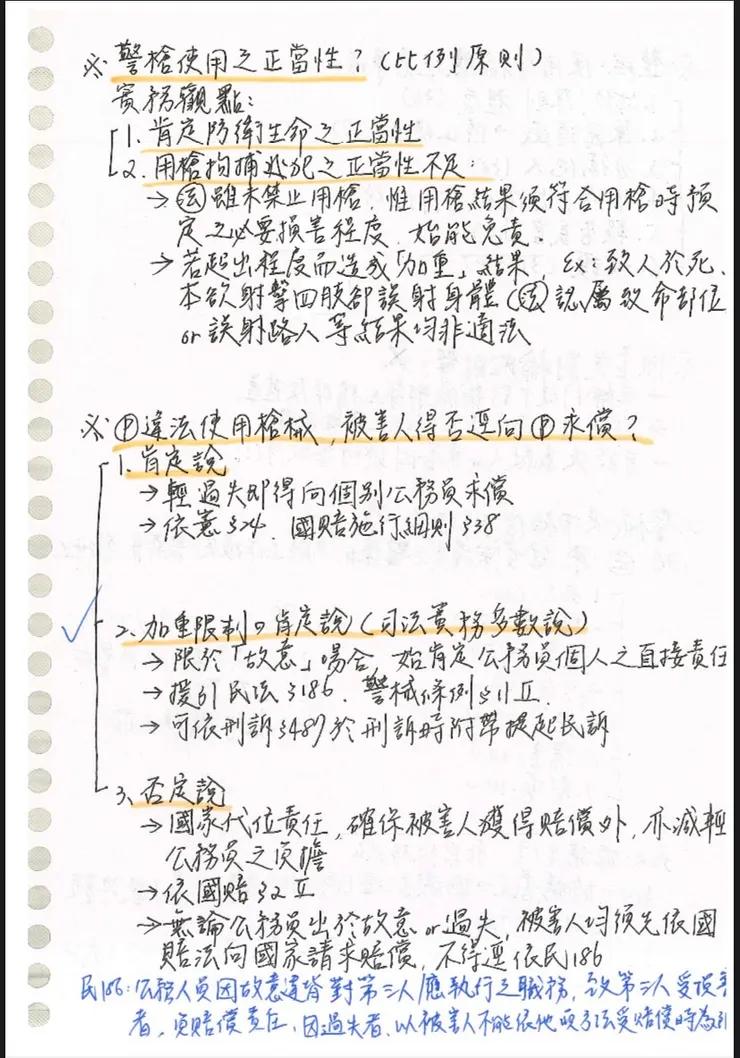 ※ 警槍使用之正當性？(比例原則)
實務觀點：
1. 肯定防衛生命之正當性
2. 用槍拘捕逃犯之正當性不足：
→ 法 雖未禁止用槍，惟用槍結果須符合用槍時預
定之必要損害程度，始能免責。
→ 若超出程度而造成「加重」結果，ex：致人於死、
本欲射擊四肢卻誤射身體(法 認屬致命部位
or 誤射路人等結果均非適法
※ P 違法使用槍械，被害人得否逕向 P 求償？
1. 肯定說
→ 輕過失即得向個別公務員求償
→ 依憲§24、國賠施行細則§38
2. 加重限制の肯定說(司法實務多數說)
→ 限於「故意」場合，始肯定公務員個人之直接責任
→ 援引民法§186、警械條例§11Ⅱ.
→ 可依刑訴§487於刑訴時附帶提起民訴
3. 否定說
→ 國家代位責任，確保被害人獲得賠償外，亦減輕
公務員之負擔
→ 依國賠§2Ⅱ
→ 無論公務員出於故意 or 過失，被害人均須先依國
賠法向國家請求賠償，不得逕依民186
民186：公務人員因故意違背對第三人應執行之職務，致第三人受損害
者，負賠償責任，因過失者，以被害人不能依他項方法受賠償時為